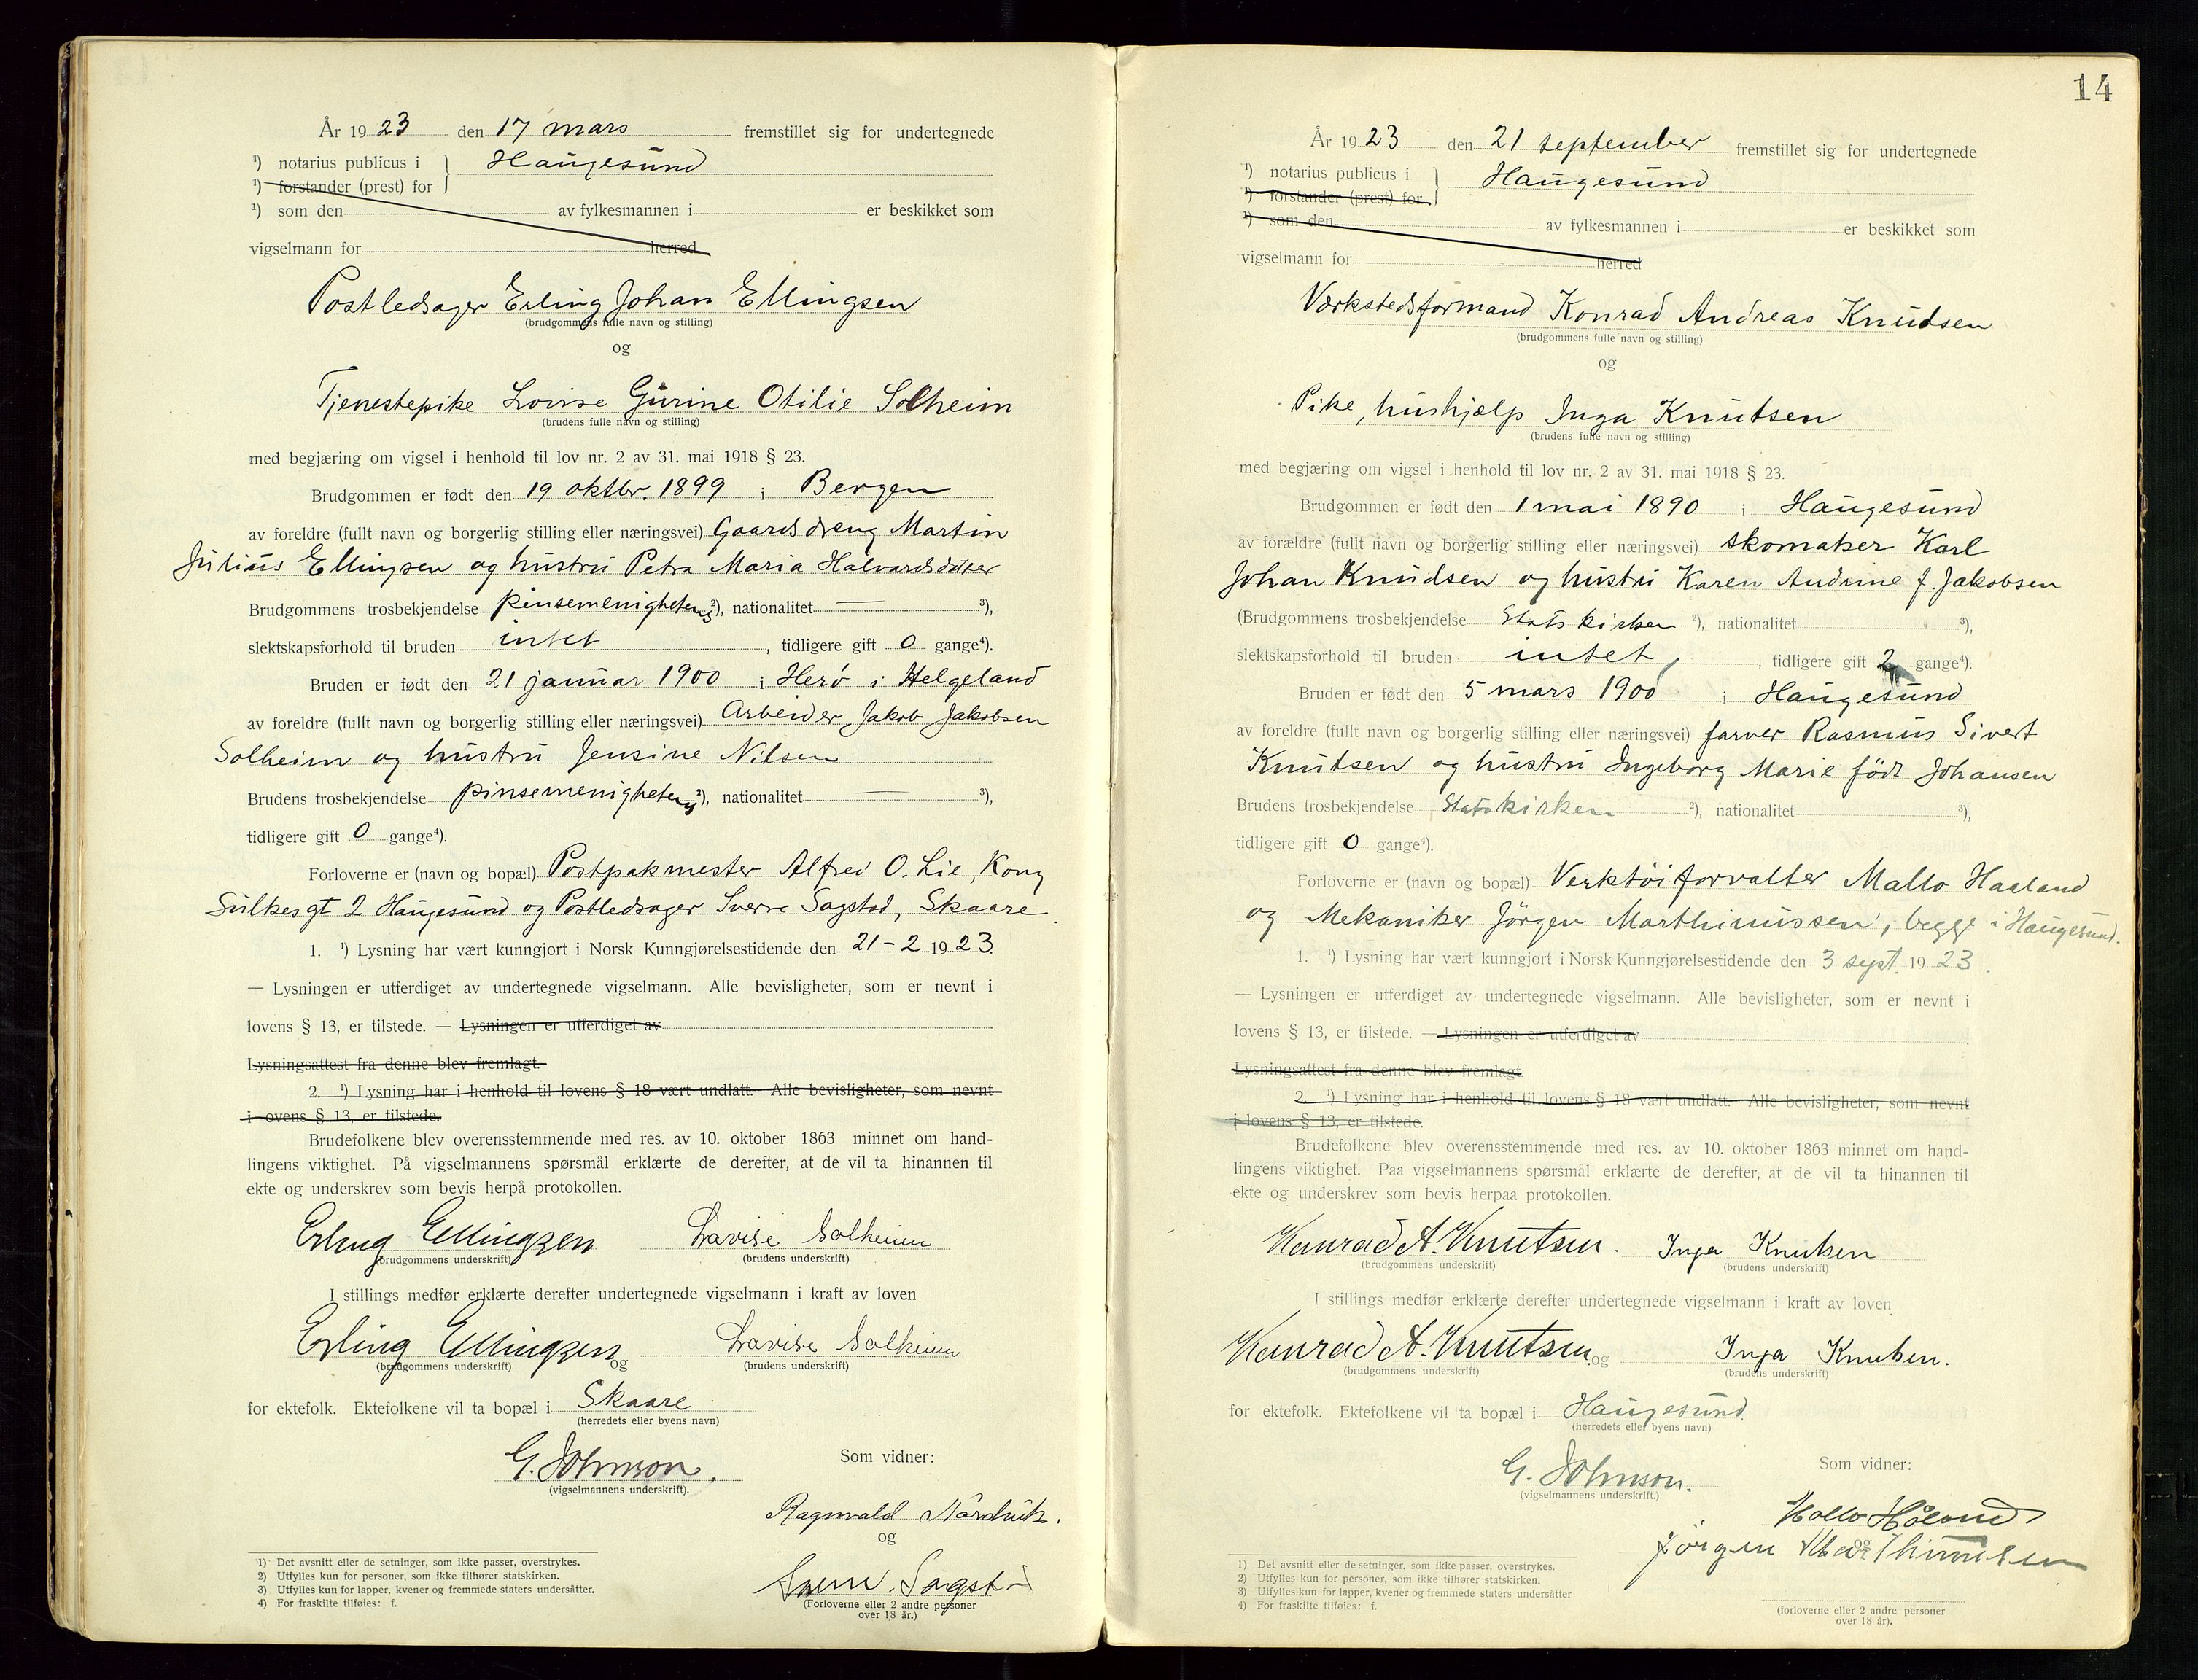 År 1923 den 17 mars fremstillet sig for undertegnede
¹) notarius publicus i } Haugesund
¹) forstander (prest) for
¹) som den av fylkesmannen i er beskikket som
vigselmann for herred
Postledsager Erling Johan Ellingsen
(brudgommens fulle navn og stilling)
og
Tjenestepike Lovise Gurine Otilie Solheim
(brudens fulle navn og stilling)
med begjæring om vigsel i henhold til lov nr. 2 av 31. mai 1918 § 23.
Brudgommen er født den 19 oktbr. 1899 i Bergen
av foreldre (fullt navn og borgerlig stilling eller næringsvei) Gaardsdreng Martin
Julius Ellingsen og hustru Petra Maria Halvardsdatter
Brudgommens trosbekjendelse pinsemenigheten ²), nationalitet — ³),
slektskapsforhold til bruden intet, tidligere gift 0 gange⁴).
Bruden er født den 21 januar 1900 i Herø i Helgeland
av foreldre (fullt navn og borgerlig stilling eller næringsvei) Arbeider Jakob Jakobsen
Solheim og hustru Jensine Nilsen
Brudens trosbekjendelse pinsemenigheten ²), nationalitet — ³),
tidligere gift 0 gange⁴).
Forloverne er (navn og bopæl) Postpakmester Alfred O. Lie, Kong
Sulkesgt 2 Haugesund og Postledsager Sverre Sagstad, Skaare.
1. ¹) Lysning har vært kunngjort i Norsk Kunngjørelsestidende den 21-2 1923.
— Lysningen er utferdiget av undertegnede vigselmann. Alle bevisligheter, som er nevnt i
lovens § 13, er tilstede. — Lysningen er utferdiget av
Lysningsattest fra denne blev fremlagt.
2. ¹) Lysning har i henhold til lovens § 18 vært undlatt. Alle bevisligheter, som nevnt
i ovens § 13, er tilstede.
Brudefolkene blev overensstemmende med res. av 10. oktober 1863 minnet om hand-
lingens viktighet. På vigselmannens spørsmål erklærte de derefter, at de vil ta hinannen til
ekte og underskrev som bevis herpå protokollen.
Erling Ellingsen Lovise Solheim
(brudgommens underskrift) (brudens underskrift)
I stillings medfør erklærte derefter undertegnede vigselmann i kraft av loven
Erling Ellingsen og Lovise Solheim
(brudgommens underskrift) (brudens underskrift)
for ektefolk. Ektefolkene vil ta bopæl i Skaare
(herredets eller byens navn)
G. Johnson. Som vidner:
(vigselmannens underskrift).
Ragnvald Nordvik.
og
Sverre Sagstad
(Forloverne eller 2 andre personer
over 18 år.)
1) Det avsnitt eller de setninger, som ikke passer, overstrykes.
2) Utfylles kun for personer, som ikke tilhører statskirken.
3) Utfylles kun for lapper, kvener og fremmede staters undersåtter.
4) For fraskilte tilføies: f.
14
År 1923 den 21 september fremstillet sig for undertegnede
¹) notarius publicus i } Haugesund
¹) forstander (prest) for
¹) som den av fylkesmannen i er beskikket som
vigselmann for herred
Værkstedsformand Konrad Andreas Knudsen
(brudgommens fulle navn og stilling)
og
Pike, hushjælp Inga Knutsen
(brudens fulle navn og stilling)
med begjæring om vigsel i henhold til lov nr. 2 av 31. mai 1918 § 23.
Brudgommen er født den 1 mai 1890 i Haugesund
av forældre (fullt navn og borgerlig stilling eller næringsvei) skomaker Karl
Johan Knudsen og hustru Karen Andrine f. Jakobsen
(Brudgommens trosbekjendelse Statskirken ²), nationalitet ³),
slektskapsforhold til bruden intet, , tidligere gift 2 gange⁴).
Bruden er født den 5 mars 1900 i Haugesund
av foreldre (fullt navn og borgerlig stilling eller næringsvei) farver Rasmus Sivert
Knutsen og hustru Ingeborg Marie født Johansen
Brudens trosbekjendelse Statskirken ²), nationalitet ³),
tidligere gift 0 gange⁴).
Forloverne er (navn og bopæl) Verktøiforvalter Mallo Haaland
og Mekaniker Jørgen Marthinussen, begge i Haugesund.
1. ¹) Lysning har vært kunngjort i Norsk Kunngjørelsestidende den 3 sept. 1923.
— Lysningen er utferdiget av undertegnede vigselmann. Alle bevisligheter, som er nevnt i
lovens § 13, er tilstede. — Lysningen er utferdiget av
Lysningsattest fra denne blev fremlagt.
2. ¹) Lysning har i henhold til lovens § 18 vært undlatt. Alle bevisligheter, som nevnt
i lovens § 13, er tilstede.
Brudefolkene blev overensstemmende med res. av 10. oktober 1863 minnet om hand-
lingens viktighet. Paa vigselmannens spørsmål erklærte de derefter, at de vil ta hinannen til
ekte og underskrev som bevis herpaa protokollen.
Konrad A. Knutsen. Inga Knutsen
(brudgommens underskrift) (brudens underskrift)
I stillings medfør erklærte derefter undertegnede vigselmann i kraft av loven
Konrad A. Knutsen og Inga Knutsen.
(brudgommens underskrift) (brudens underskrift)
for ektefolk. Ektefolkene vil ta bopæl i Haugesund.
(herredets eller byens navn)
G. Johnson. Som vidner:
(vigselmannens underskrift.)
Håland
og
Jörgen Marthinusen
(forloverne eller 2 andre personer
over 18 år).
1) Det avsnitt eller de setninger, som ikke passer, overstrykes.
2) Utfylles kun for personer, som ikke tilhører statskirken.
3) Utfylles kun for lapper, kvener og fremmede staters undersåtter
4) For fraskilte tilføies: f.